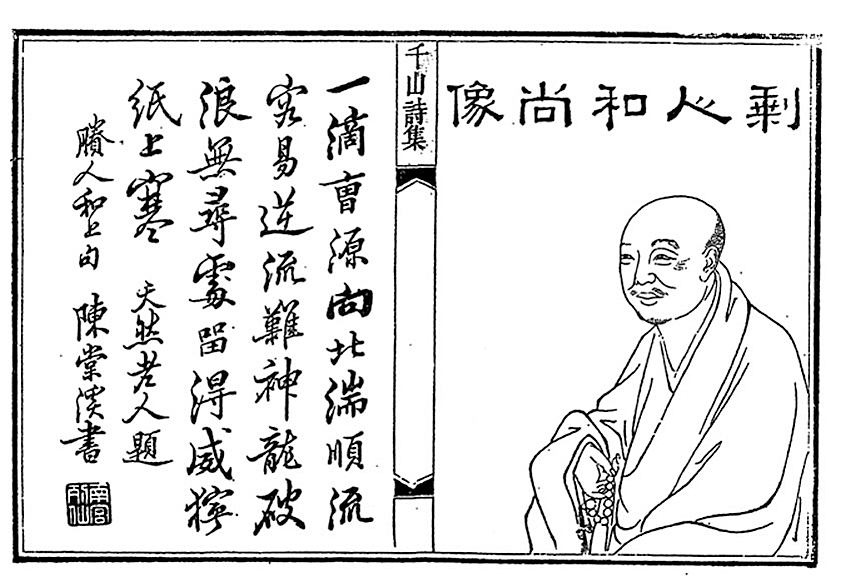 剩人和尚像
千山詩集
一滴曹源向北湍順流
容易逆流難神龍破
浪無尋處留得威獰
紙上寒 天然老人題
賸人和上 陳棠溪書